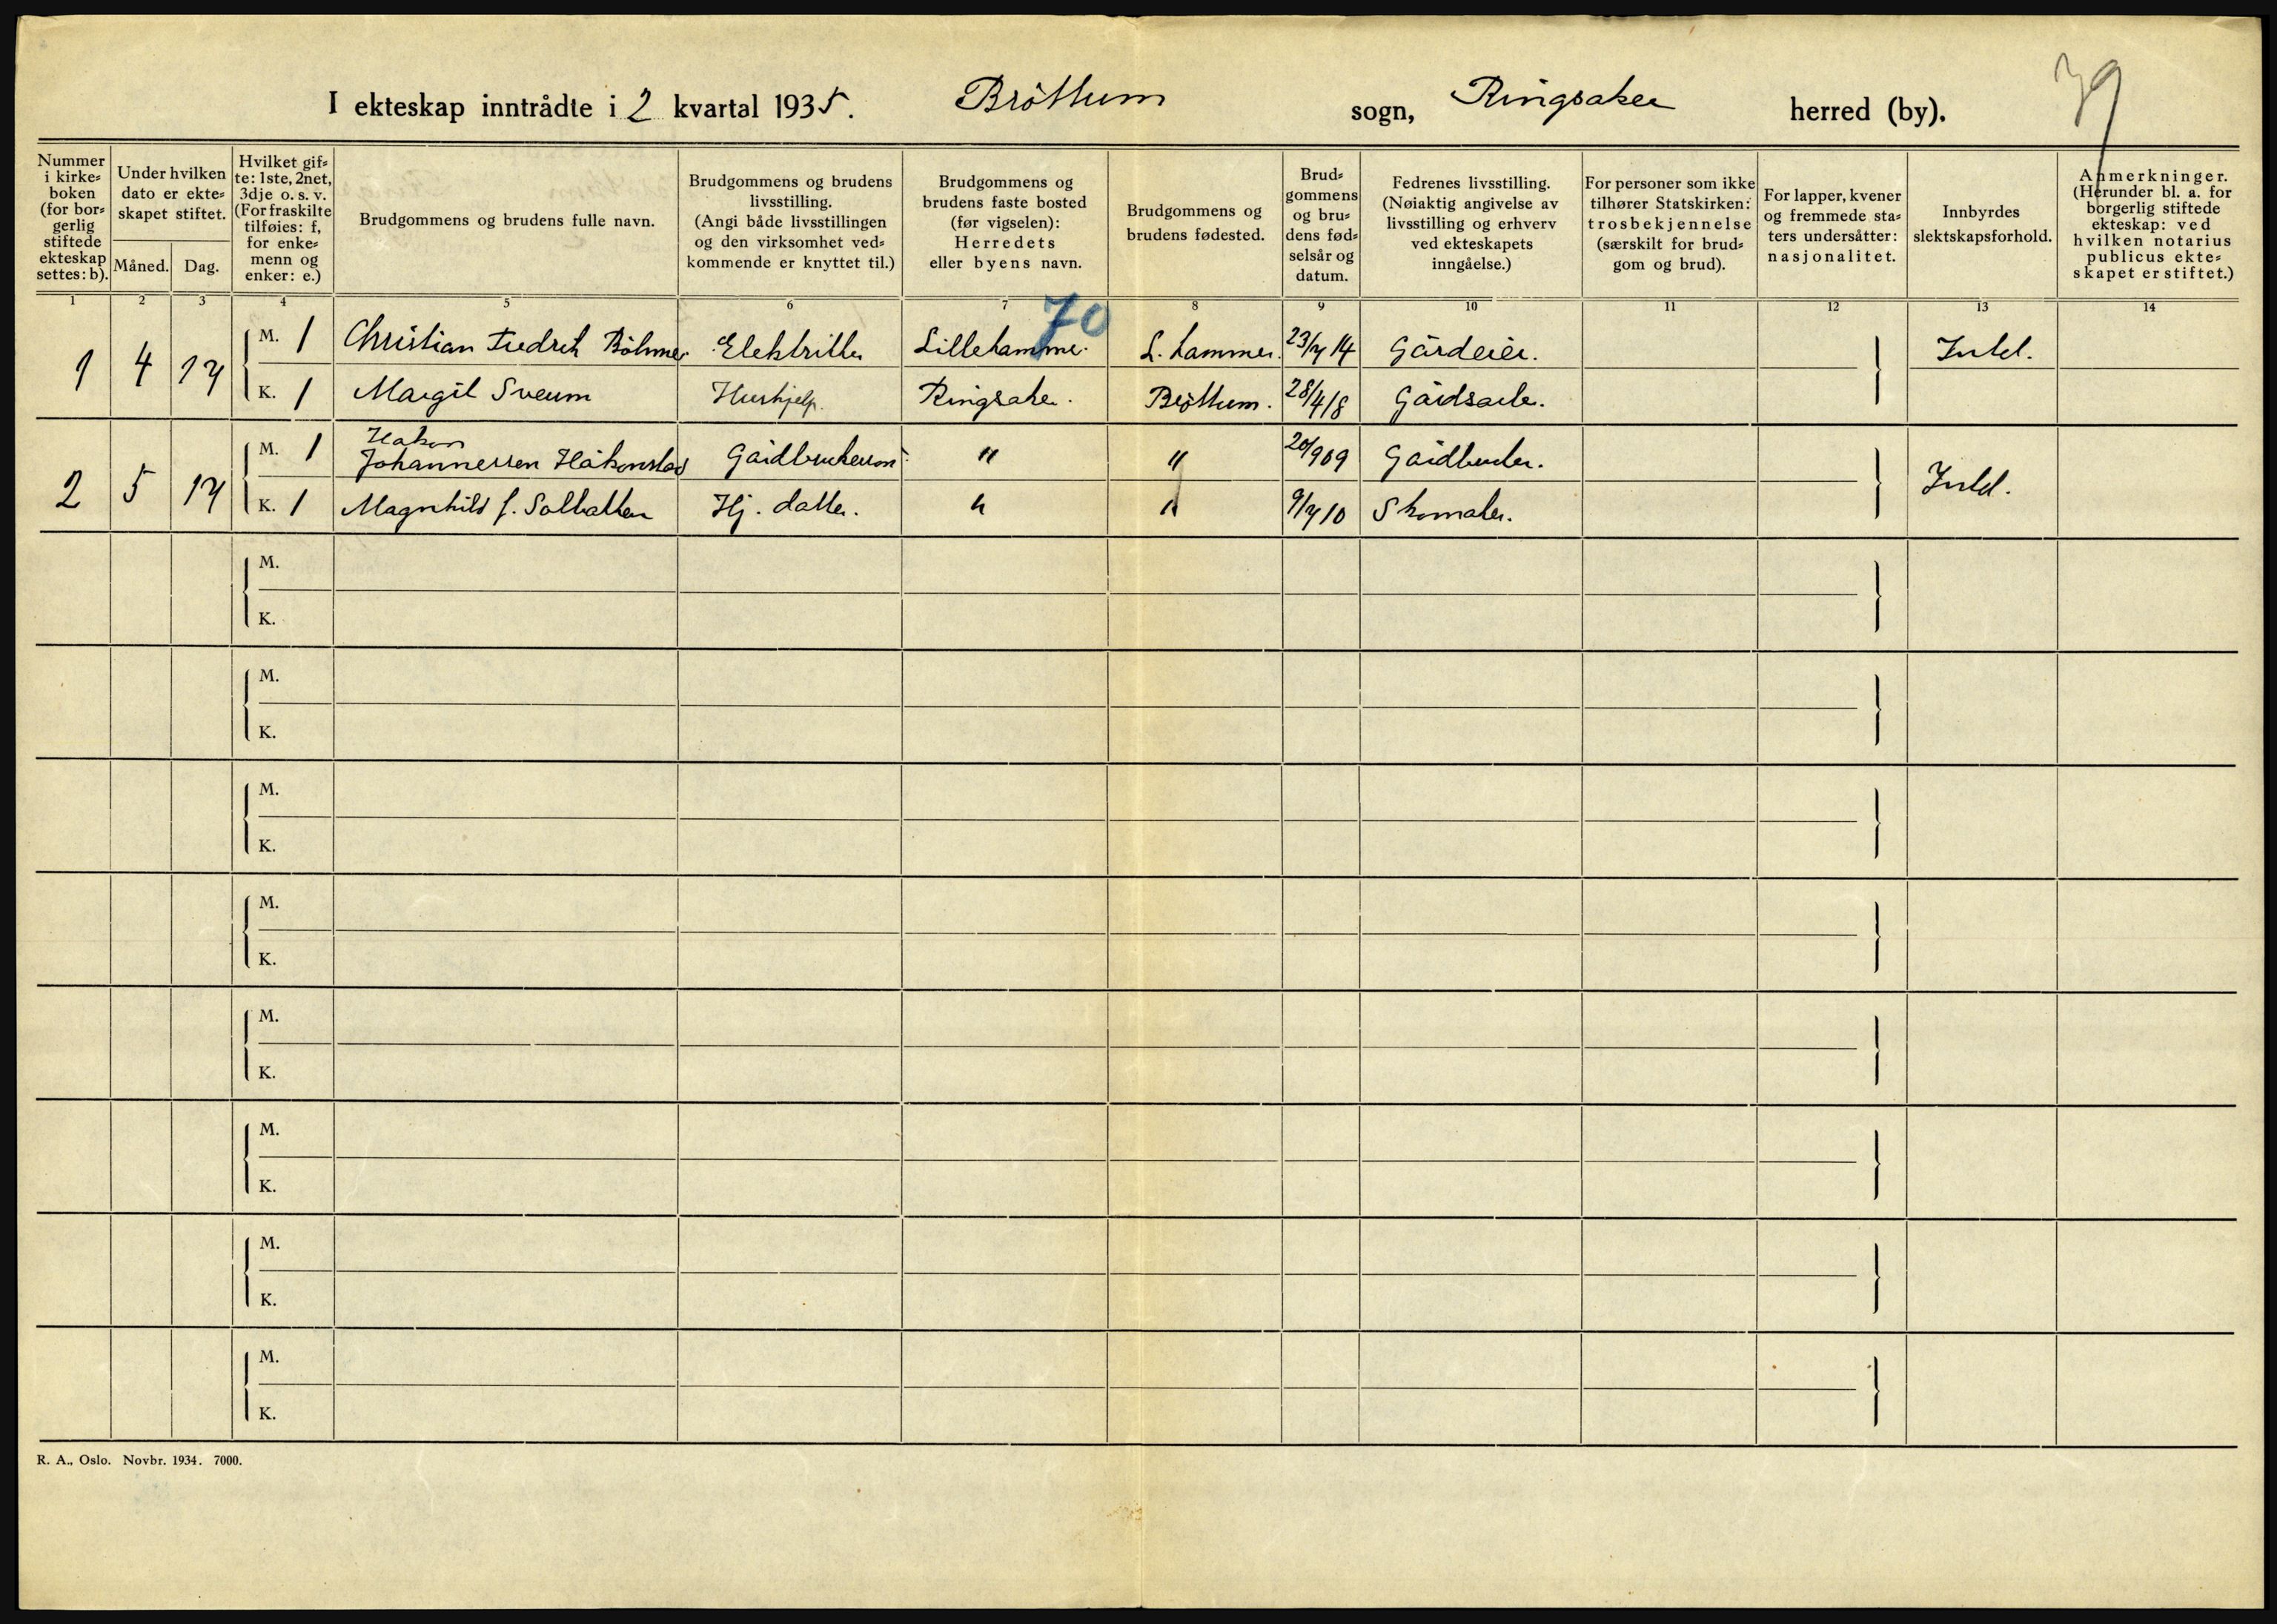 39
I ekteskap inntrådte i 2 kvartal 1935. Bröttum sogn, Ringsaker herred (by).
Nummer i kirke=boken (for bor=gerlig stiftede ekteskap settes: b).
Under hvilken dato er ekte=skapet stiftet.
Måned. Dag.
Hvilket gif=te: 1ste, 2net, 3dje o. s. v. (For fraskilte tilføies: f, for enke=menn og enker: e.)
Brudgommens og brudens fulle navn.
Brudgommens og brudens livsstilling. (Angi både livsstillingen og den virksomhet ved=kommende er knyttet til.)
Brudgommens og brudens faste bosted (før vigselen): Herredets eller byens navn.
Brudgommens og brudens fødested.
Brud=gommens og bru=dens fød=selsår og datum.
Fedrenes livsstilling. (Nøiaktig angivelse av livsstilling og erhverv ved ekteskapets inngåelse.)
For personer som ikke tilhører Statskirken: trosbekjennelse (særskilt for brud=gom og brud).
For lapper, kvener og fremmede sta=ters undersåtter: nasjonalitet.
Innbyrdes slektskapsforhold.
Anmerkninger. (Herunder bl. a. for borgerlig stiftede ekteskap: ved hvilken notarius publicus ekte=skapet er stiftet.)
1 2 3 4 5 6 7 8 9 10 11 12 13 14
70
1 4 17 M. 1 Christian Fredrik Böhmer Elektriker Lillehammer. L. hammer. 23/7 14 Gårdeier. Intet.
K. 1 Margit Sveum Hushjelp. Ringsaker. Bröttum. 28/4 18 Gårdsarb.
2 5 17 M. 1 Håkon Johannessen Håkonstad Gårdbrukersøn. " " 20/9 09 Gårdbruker. Intet.
K. 1 Magnhild f. Solbakken Hj. datter. " " 9/7 10 Skomaker.
M.
K.
M.
K.
M.
K.
M.
K.
M.
K.
M.
K.
M.
K.
M.
K.
R. A., Oslo. Novbr. 1934. 7000.